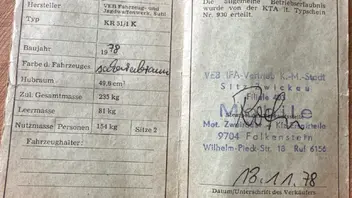 Hersteller VEB Fahrzeug- und
Jagdwaffenwerk, Suhl
Typ KR 51/1 K
Baujahr: 1978
Farbe d. Fahrzeuges
Hubraum 49,6 cm³
Zul. Gesamtmasse 235 kg
Leermasse 81 kg
Nutzmasse Personen 154 kg Sitze 2
Fahrzeughalter:
Die allgemeine Betriebserlaubnis
wurde von der KTA lt. Typschein
Nr. 930 erteilt.
VEB IFA-Vertrieb K.-M.-Stadt
Sitz Zwickau
Filiale
Mobile
Mot. Zweirad
9704 Falkenstein
Wilhelm-Pieck-Str. 18 Ruf 6156
18.11.78
Datum/Unterschrift des Verkäufers